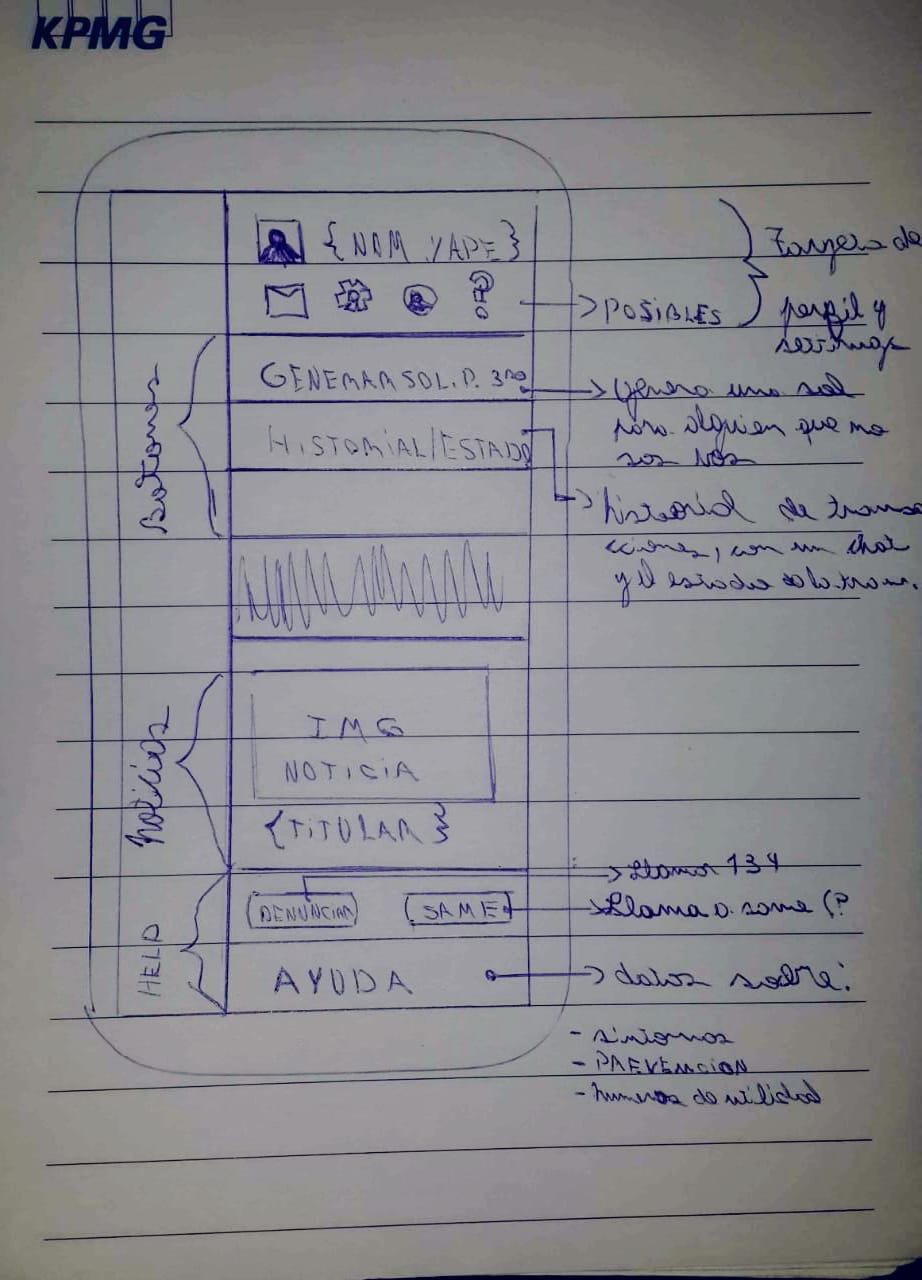 KPMG
{NOM Y APE}
Targeta de
perfil y
settings
POSIBLES
Botones
GENERAR SOL. P. 3RO
Genera una sol
para alguien que no
sos vos
HISTORIAL/ESTADO
historial de transa
cciones, con un chat
y el estado de la trans.
Noticias
IMG
NOTICIA
{TITULAR}
HELP
DENUNCIAR
SAME
Llamar 134
Llama a same (?
AYUDA
datos sobre:
- sintomas
- PREVENCION
- numeros de utilidad